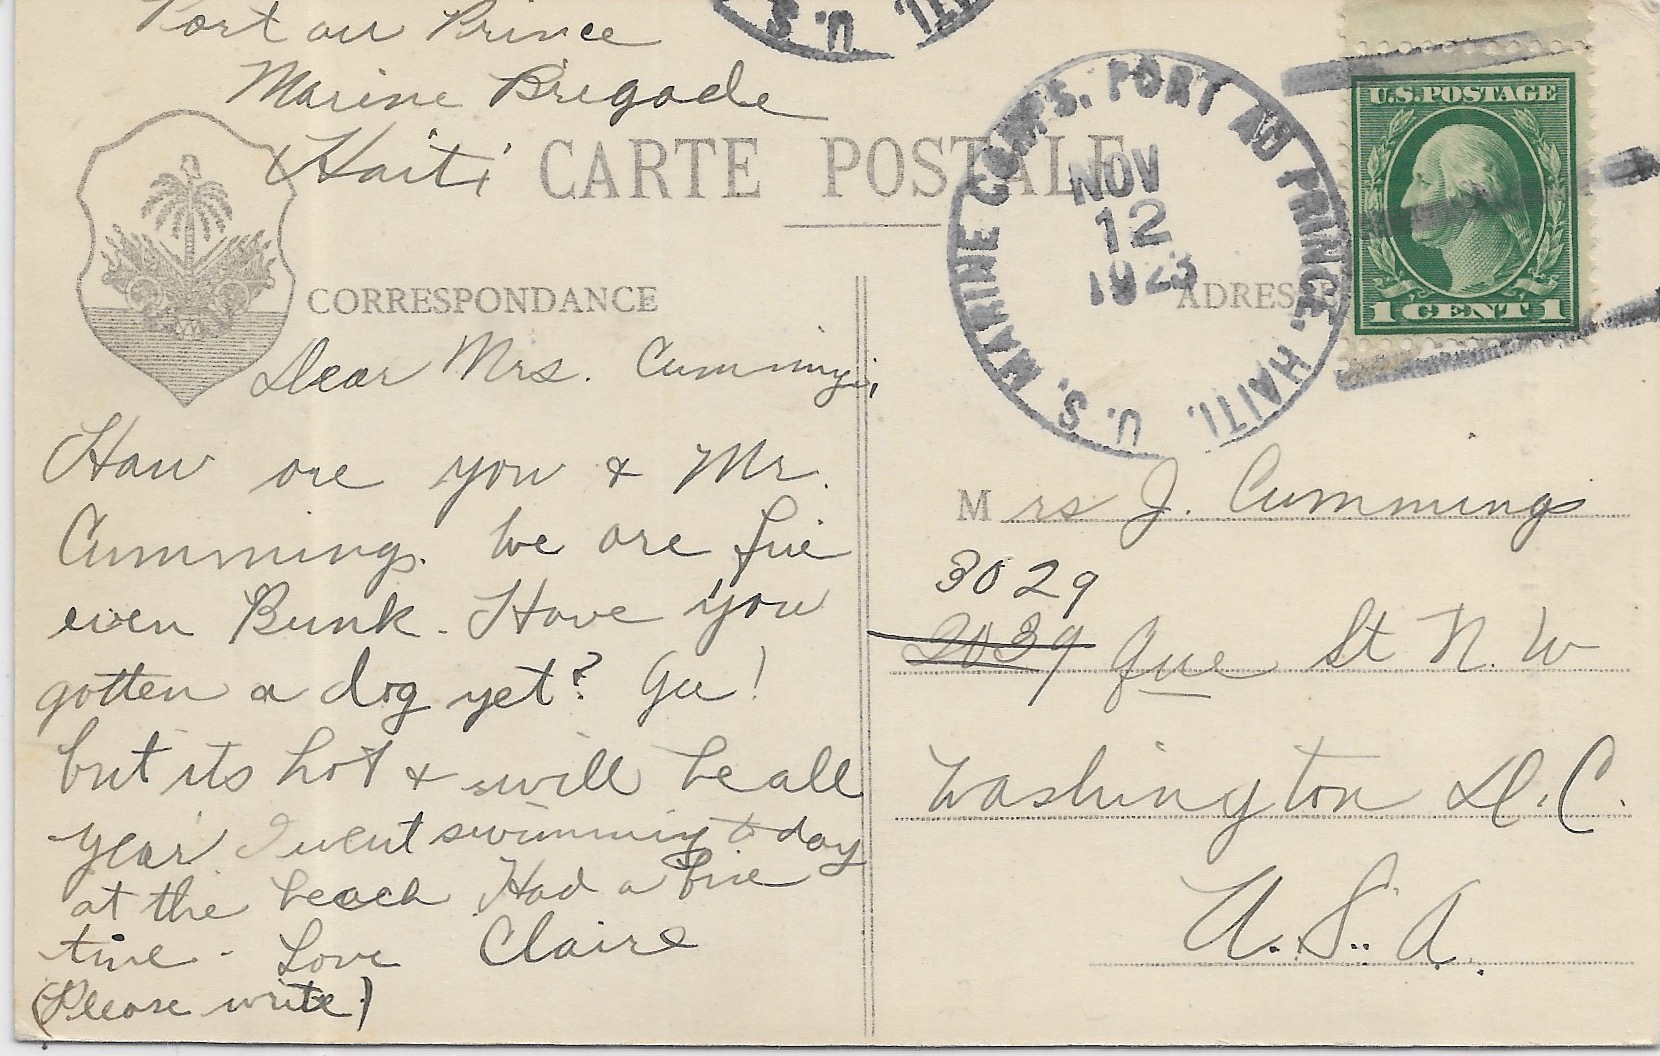 Port au Prince
Marine Brigade
Haiti
CARTE POSTALE
U.S.
U.S. MARINE CORPS. PORT AU PRINCE. HAITI.
NOV
12
1923
U.S.POSTAGE
1 CENT 1
CORRESPONDANCE
ADRESSE
Dear Mrs. Cummings,
How are you & Mr.
Cummings. We are fine
even Bunk. Have you
gotten a dog yet? Gee!
but its hot & will be all
year I went swimming today
at the beach Had a fine
time - Love Claire
(Please write)
Mrs J. Cummings
3029
2039 Que St N.W
Washington D.C.
U.S.A.